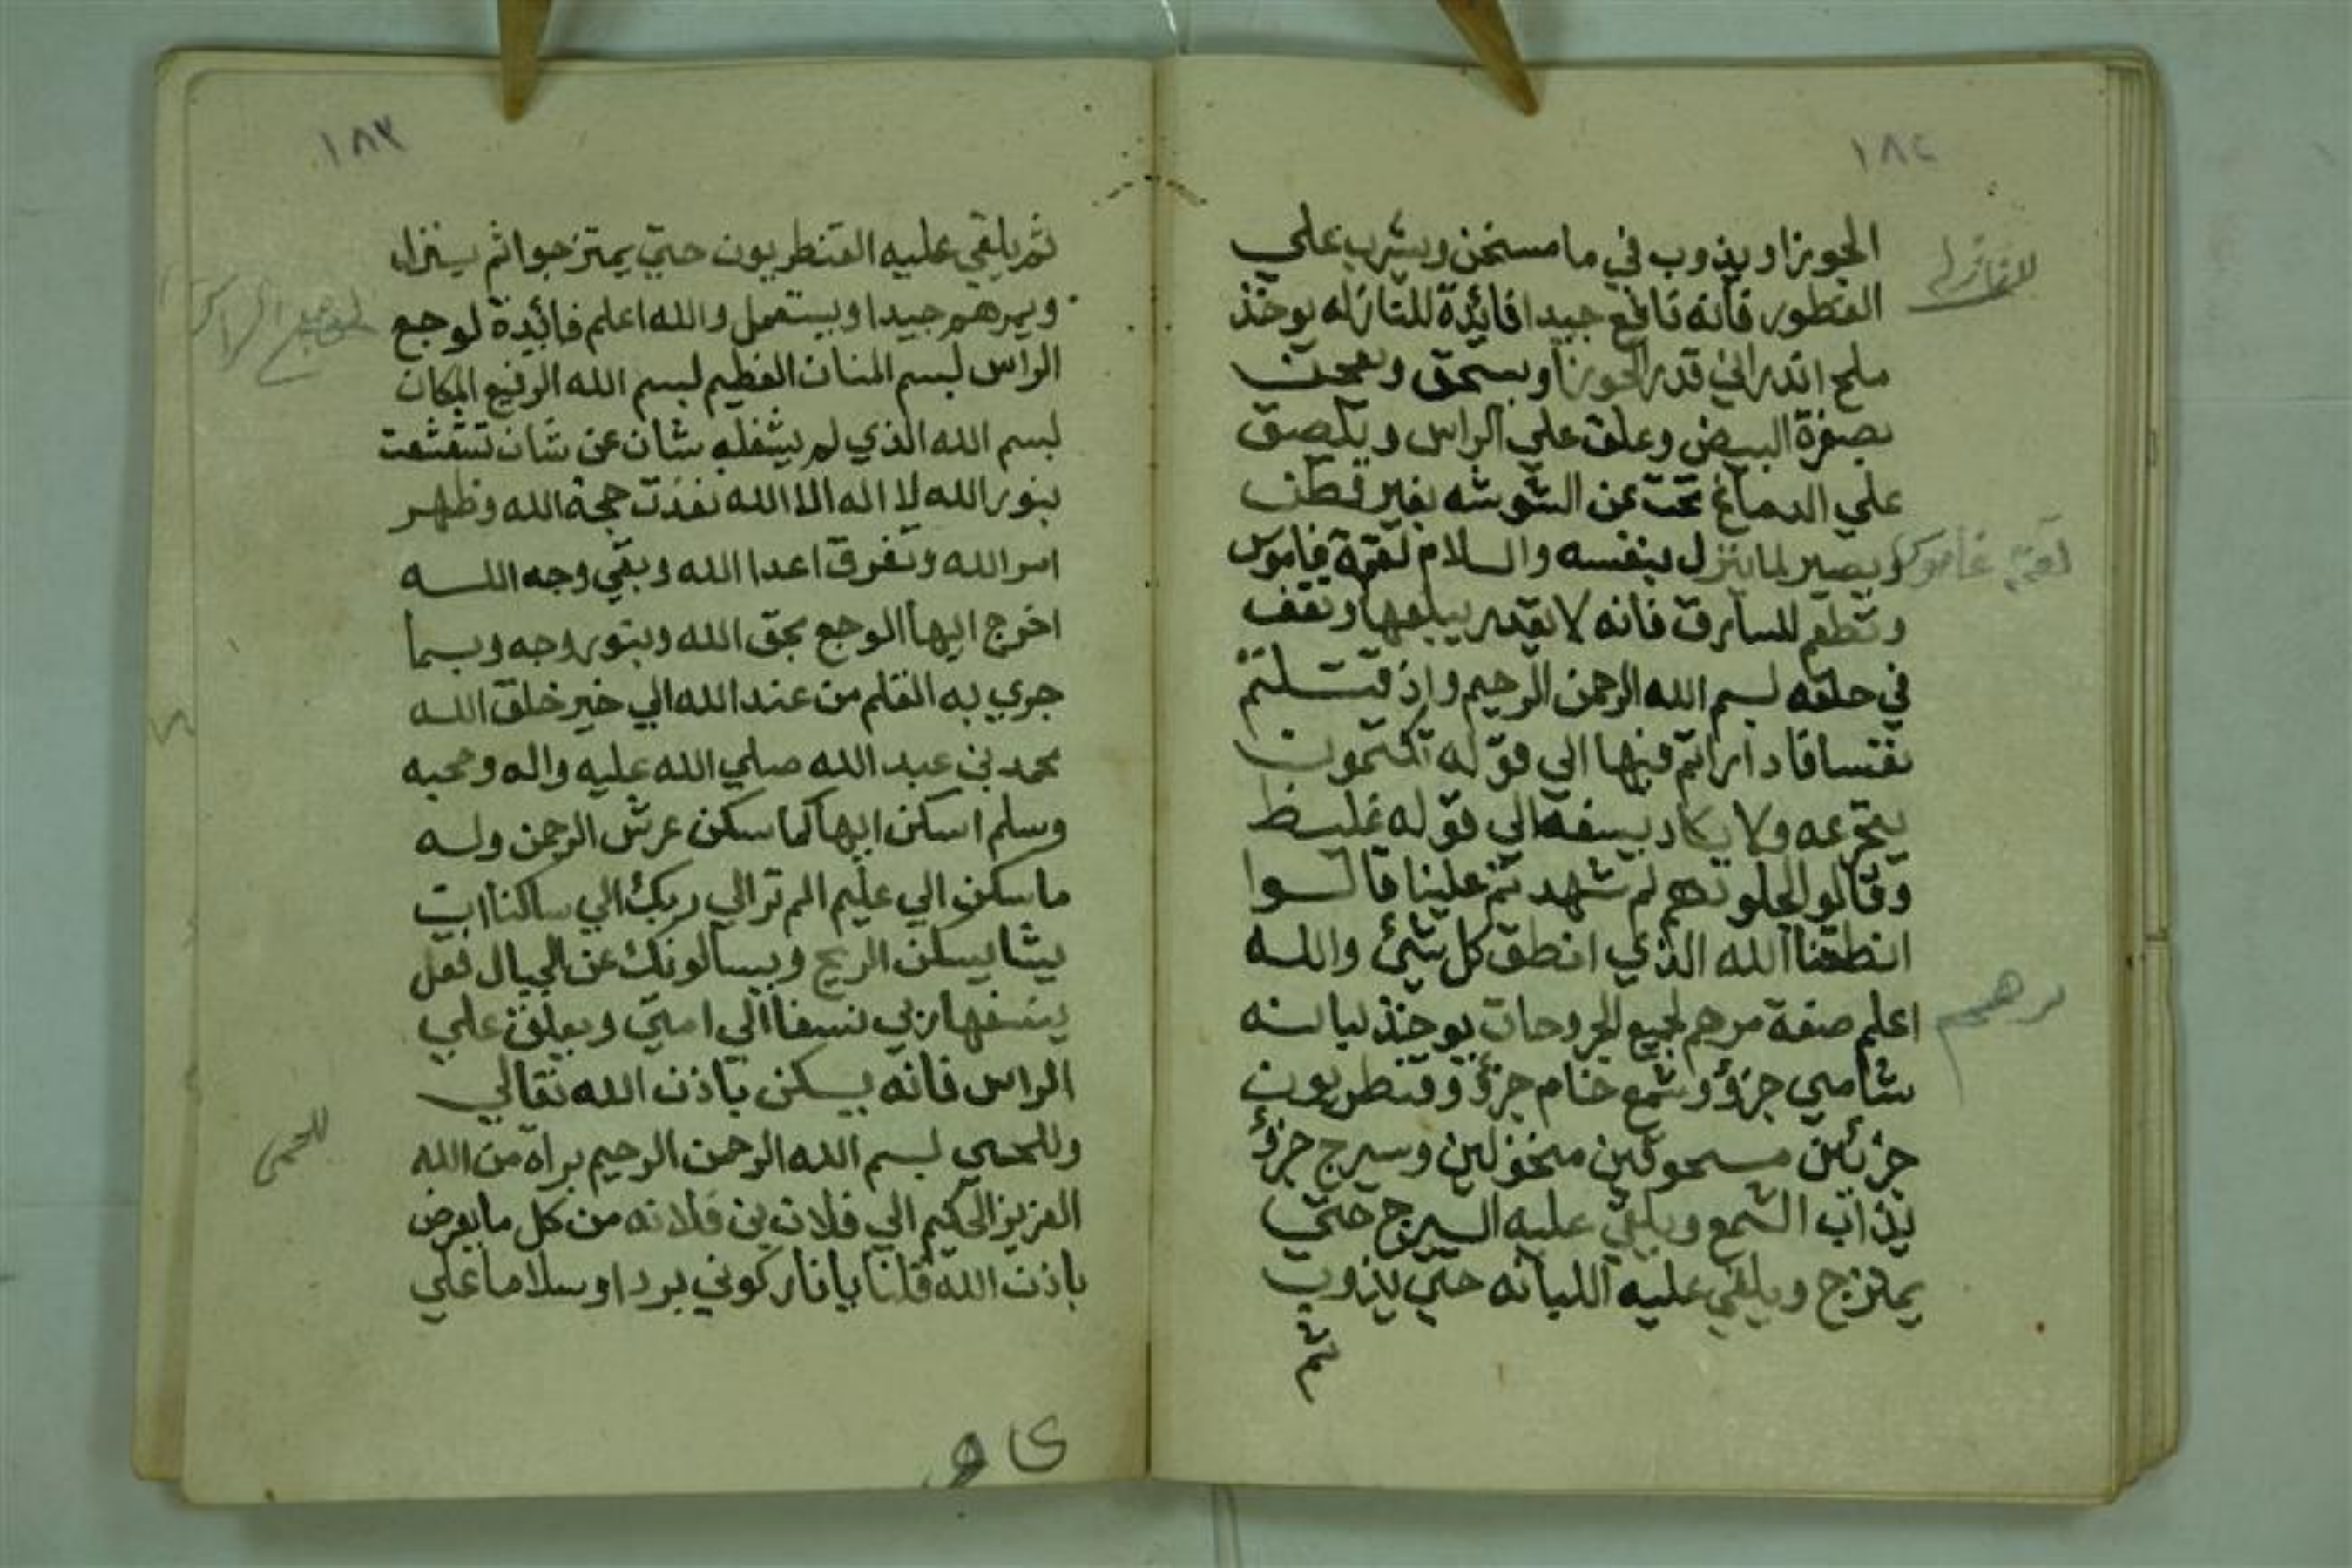 ١٨٤
الجوزا ويذوب في ما مسخن ويشرب علي
الفطور فانه نافع جيدا فائدة للنازله يوخذ
ملح اندراني قدر الجوزا ويسحق ويعجن
بصفرة البيض وعلق علي الراس ويلصق
علي الدماغ تحت عن الشوشه بغير قطن
ويصير لما ينزل بنفسه والسلام لقمة غاموس
وتطعم للسارق فانه لا يقدر يبلعها وتقف
في حلقه بسم الله الرحمن الرحيم واذ قتلتم
نفسا فاداراتم فيها الي قوله تكتمون
يتجرعه ولا يكاد يسيغه الي قوله غليظ
وقالوا لجلودهم لم شهدتم علينا قالوا
انطقنا الله الذي انطق كل شئ والله
اعلم صفة مرهم لجميع الجروحات يوخذ لبانه
شامي جزؤ وشمع خام جزؤ وقنطريون
جزئين مسحوقين منخولين وسيرج جزؤ
يذاب الشمع ويلقي عليه السيرج حتي
يمتزج ويلقي عليه اللبانه حتي يذوب
ثم
للنازله
لقمة غاموس
مرهم
١٨٣
ثم يلقي عليه القنطريون حتي يمتزجوا ثم ينزل
ويمرهم جيدا ويستعمل والله اعلم فائدة لوجع
الراس بسم المنان العظيم بسم الله الرفيع المكان
بسم الله الذي لم يشغله شان عن شان تشعشعت
بنور الله لا اله الا الله نفذت حجة الله وظهر
امر الله وتفرق اعدا الله وبقي وجه الله
اخرج ايها الوجع بحق الله وبنور وجه وبما
جري به القلم من عند الله الي خير خلق الله
محمد بن عبد الله صلي الله عليه واله وصحبه
وسلم اسكن ايها كما سكن عرش الرحمن وله
ما سكن الي عليم الم تر الي ربك الي ساكنا ان
يشا يسكن الريح ويسالونك عن الجبال فقل
ينسفها ربي نسفا الي امتي ويعلق علي
الراس فانه يسكن باذن الله تعالي
وللحمي بسم الله الرحمن الرحيم براة من الله
العزيز الحكيم الي فلان بن فلانه من كل ما يعرض
باذن الله قلنا يا نار كوني بردا وسلاما علي
للحمى